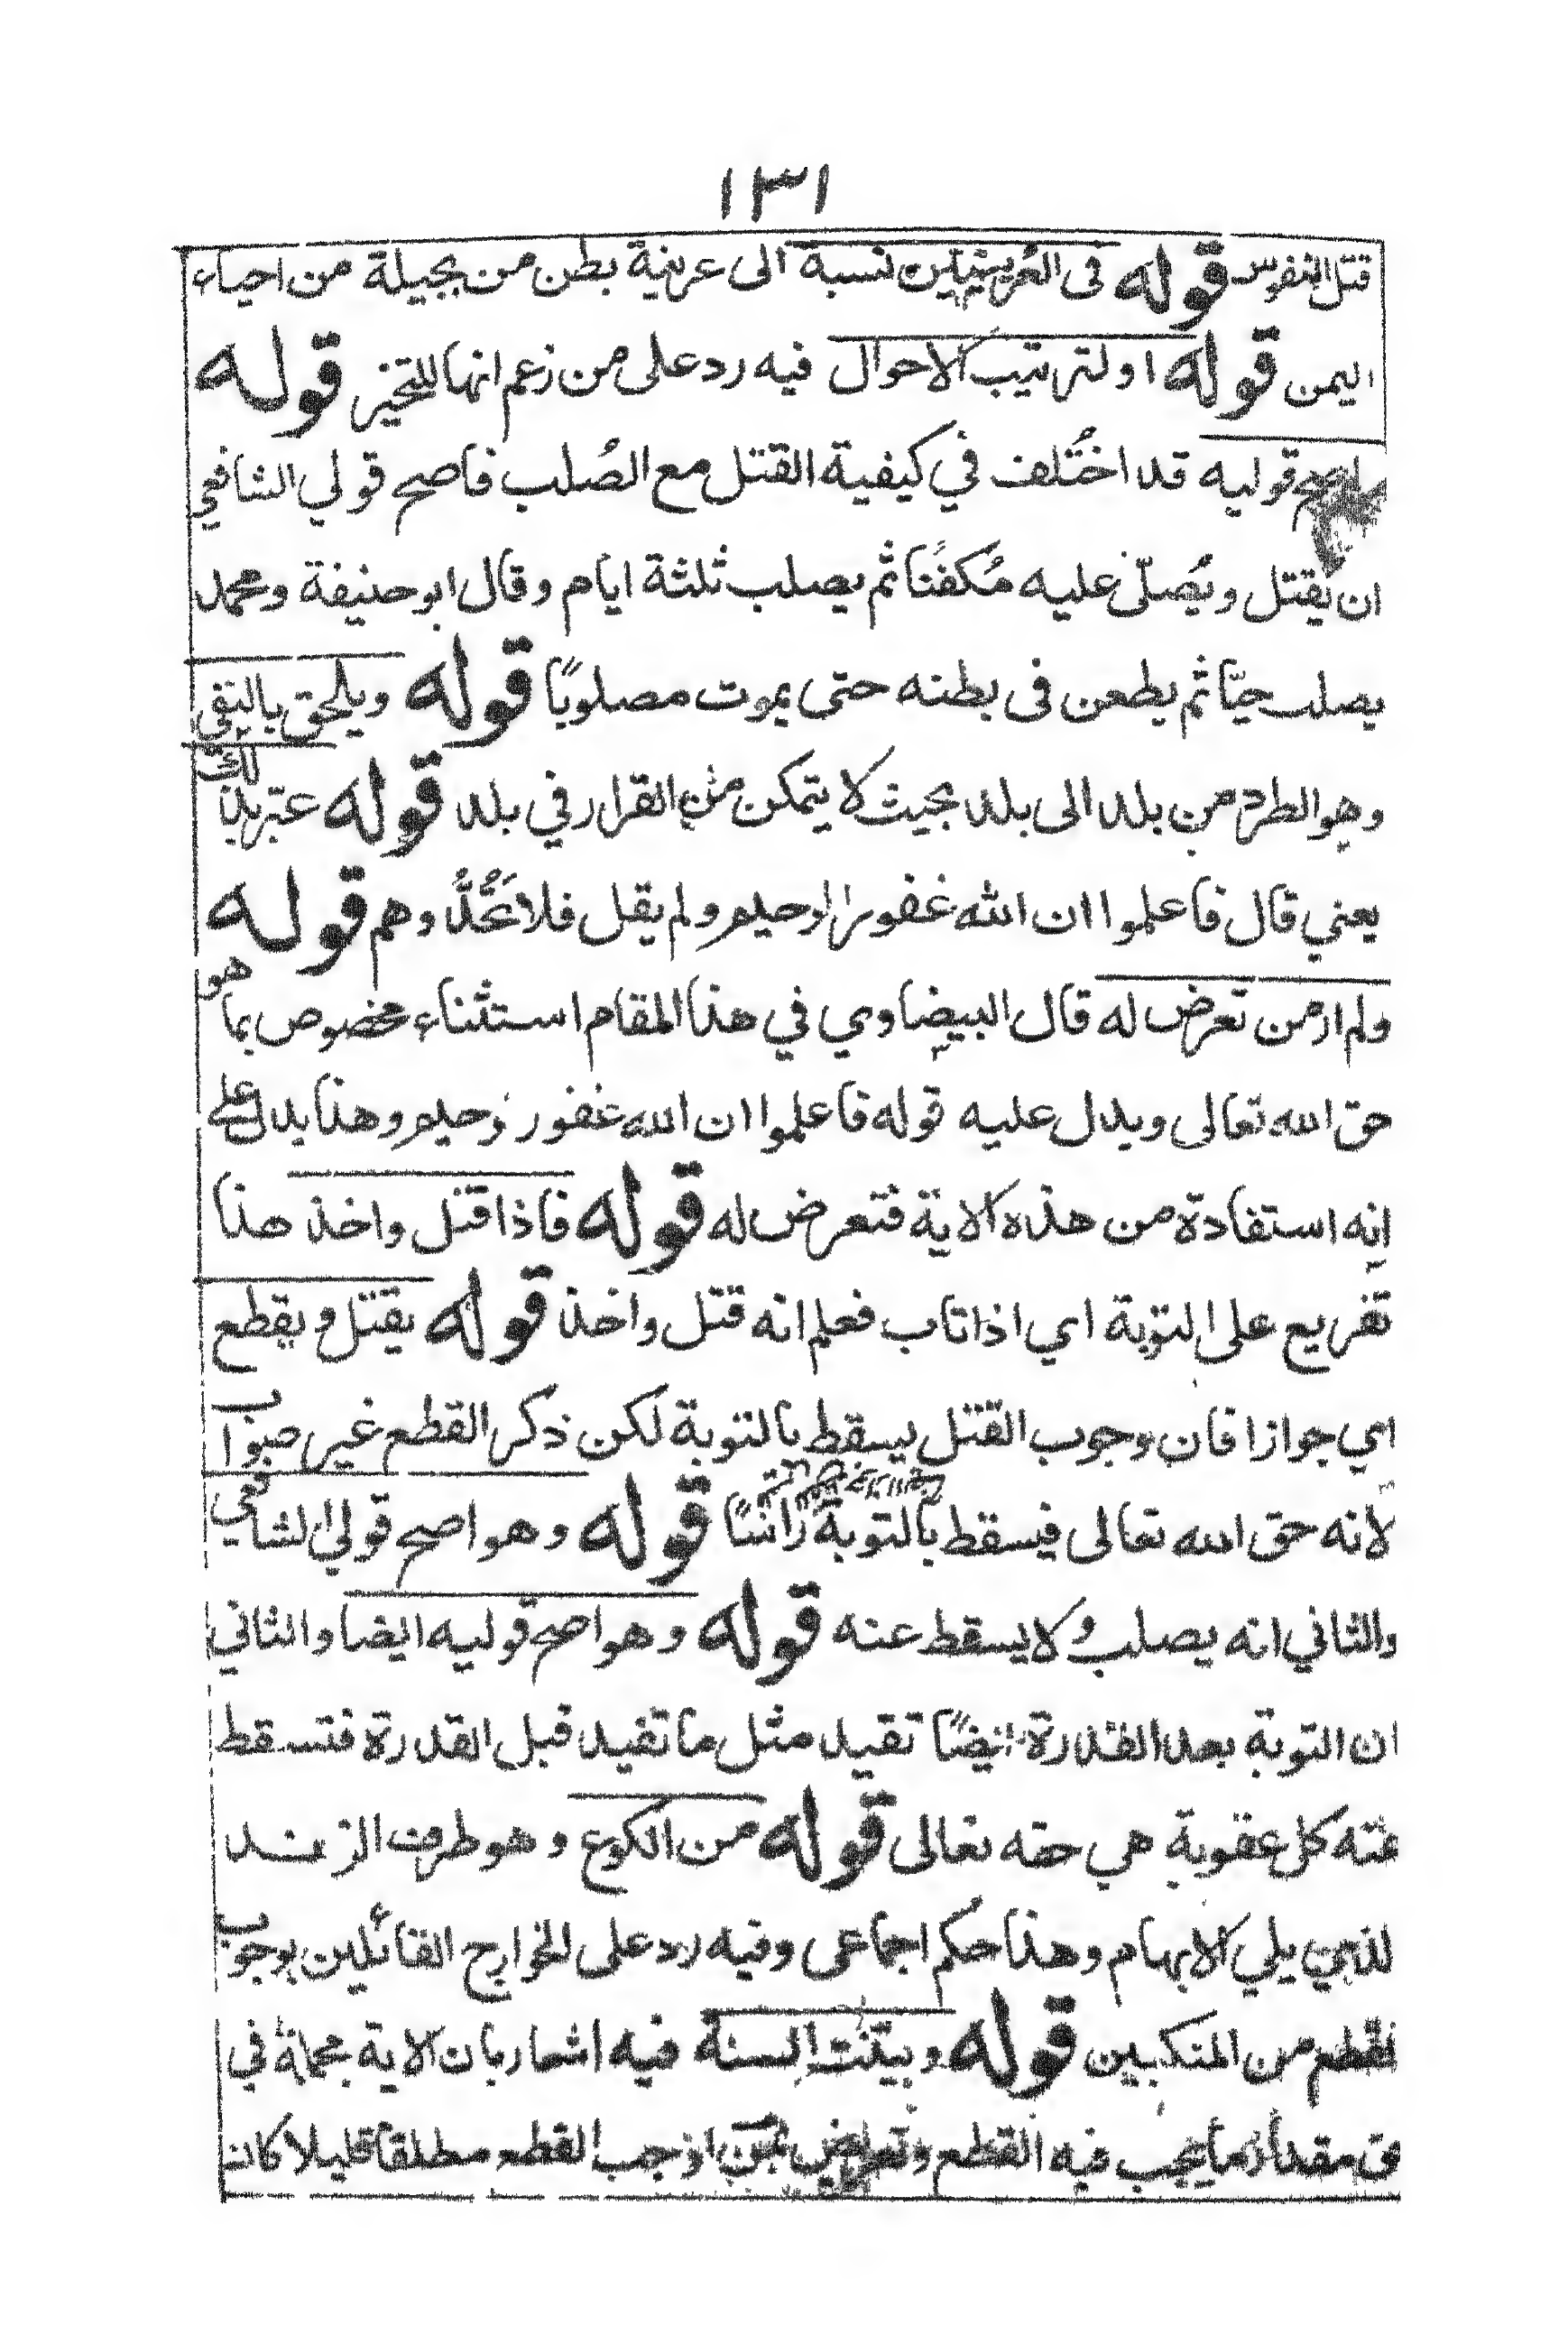 ١٣١
قتل النفوس قوله في العرنيين نسبة الى عرينة بطن من بجيلة من احياء
اليمن قوله او لترتيب الاحوال فيه رد على من زعم انها للتخير قوله
اصح قوليه قد اختُلف في كيفية القتل مع الصُلب فاصح قولي الشافعي
ان يقتل ويُصلّى عليه مُكفنًا ثم يصلب ثلثة ايام وقال ابو حنيفة ومحمد
يصلب حيًّا ثم يطعن في بطنه حتى يموت مصلوبًا قوله ويلحق بالنفي
وهو الطرد من بلد الى بلد بحيث لا يتمكن من القرار في بلد قوله عبّر بذلك
يعني قال فاعلموا ان الله غفور رحيم ولم يقل فلا تحُدُّوهم قوله
ولم ار من تعرض له قال البيضاوي في هذا المقام استثناء مخصوص بما هو
حق الله تعالى ويدل عليه قوله فاعلموا ان الله غفور رحيم وهذا يدل على
انه استفادة من هذه الاية فتعرض له قوله فاذا قتل واخذ هذا
تفريع على التوبة اي اذا تاب فعلم انه قتل واخذ قوله يقتل ويقطع
اي جوازا فان وجوب القتل يسقط بالتوبة لكن ذكر القطع غير صواب
لانه حق الله تعالى فيسقط بالتوبة قوله وهو اصح قولي الشافعي
والثاني انه يصلب ولا يسقط عنه قوله وهو اصح قوليه ايضا والثاني
ان التوبة بعد القدرة ايضًا تفيد مثل ما تفيد قبل القدرة فتسقط
عنه كل عقوبة هي حقه تعالى قوله من الكوع وهو طرف الزند
لذي يلي الابهام وهذا حكم اجماعي وفيه رد على الخوارج القائلين بوجوب
لقطع من المنكبين قوله وبيّنت السنة فيه اشعار بان الاية مجملة في
حق مقدار ما يجب فيه القطع اوجب القطع مطلقا قليلا كان